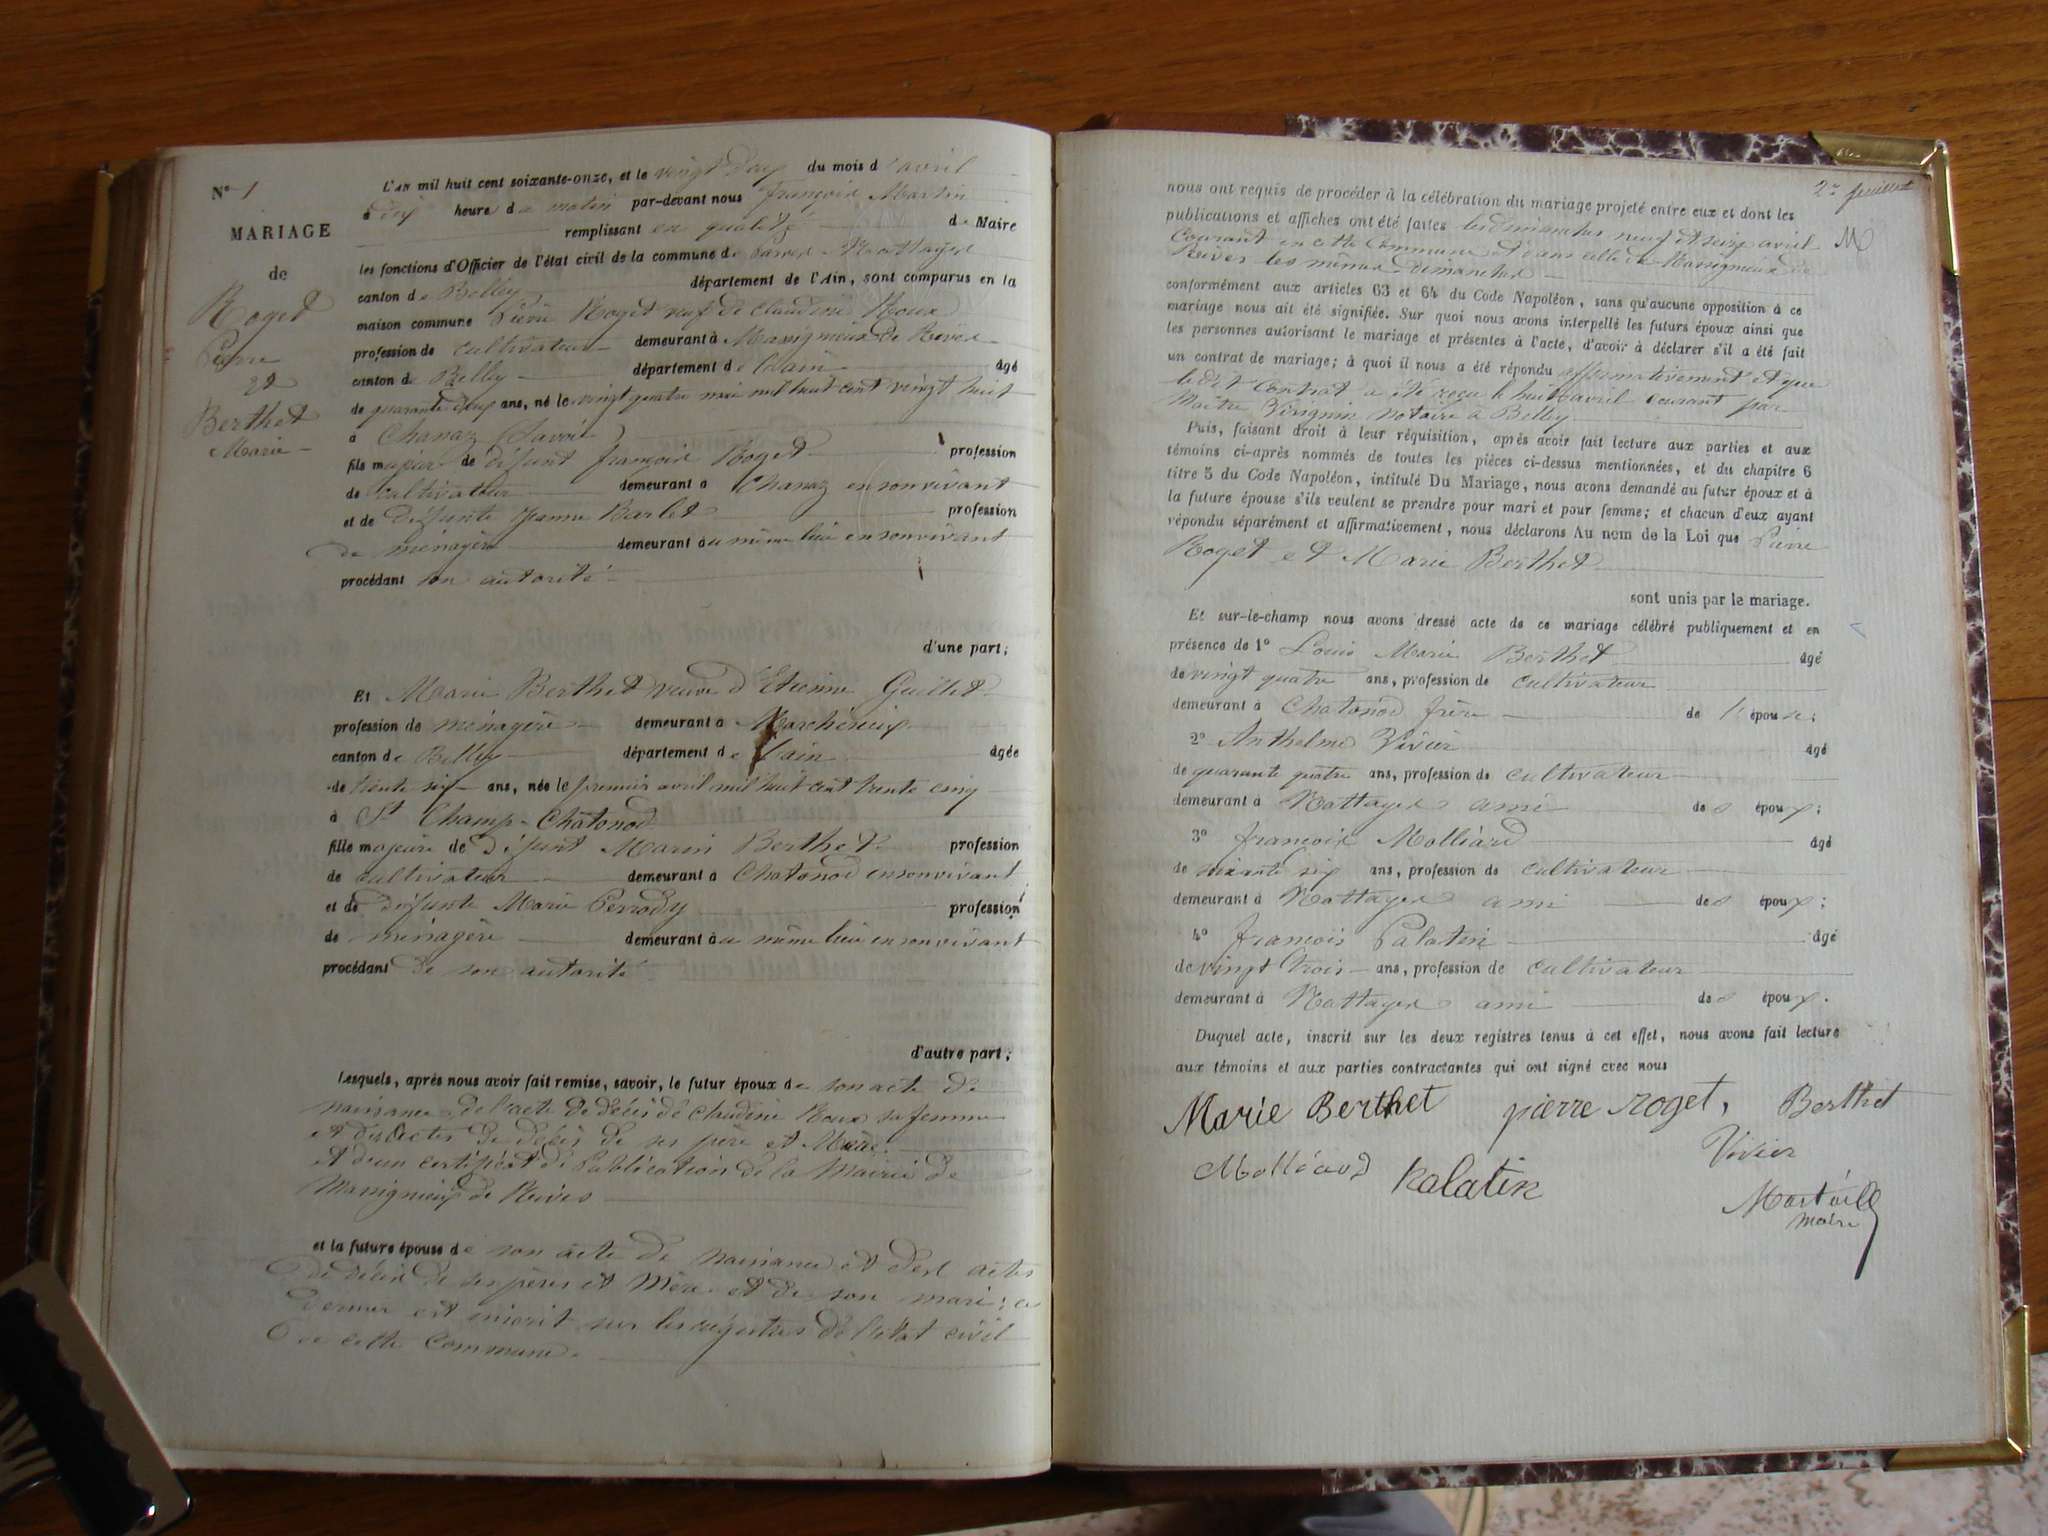 N° 1
MARIAGE
de
Roget
Pierre
et
Berthet
Marie
L'AN mil huit cent soixante-onze, et le vingt deux du mois d'avril
à dix heure du matin par-devant nous françois Martin
remplissant en qualité de Maire
les fonctions d'Officier de l'état civil de la commune de
canton de Belley département de l'Ain, sont comparus en la
maison commune Pierre Roget veuf de Claudine Roux
profession de cultivateur demeurant à Massignieux de Rives
canton de Belley département de l'ain âgé
de quarante deux ans, né le vingt quatre mai mil huit cent vingt huit
à Chanaz (Savoie)
fils majeur de défunt françois Roget profession
de cultivateur demeurant à Chanaz en son vivant
et de défunte Jeanne Barlet profession
de ménagère demeurant au même lieu en son vivant
procédant son autorité
d'une part;
Et Marie Berthet veuve d'Etienne Guillet
profession de ménagère demeurant à Marchineix
canton de Belley département de l'ain âgée
de trente six ans, née le premier avril mil huit cent trente cinq
à St Champ-Châtonod
fille majeure de défunt Marin Berthet profession
de cultivateur demeurant à Chatonod en son vivant
et de défunte Marie Perrody profession
de ménagère demeurant au même lieu en son vivant
procédant de son autorité
d'autre part;
Lesquels, après nous avoir fait remise, savoir, le futur époux de son acte de
naissance de l'acte de décès de Claudine Roux sa femme
et des actes de décès de ses père et Mère.
et d'un certificat de Publication de la Mairie de
Massignieux de Rives
et la future épouse de son acte de naissance et des actes
de décès de ses pères et Mère et de son mari; ce
dernier est inscrit sur les régistres de l'état civil
de cette commune.
2e feuillet
nous ont requis de procéder à la célébration du mariage projeté entre eux et dont les
publications et affiches ont été faites les dimanches neuf et seize avril
Courant en cette Commune et dans celle de Massignieux de
Rives les mêmes dimanches
conformément aux articles 63 et 64 du Code Napoléon, sans qu'aucune opposition à ce
mariage nous ait été signifiée. Sur quoi nous avons interpellé les futurs époux ainsi que
les personnes autorisant le mariage et présentes à l'acte, d'avoir à déclarer s'il a été fait
un contrat de mariage; à quoi il nous a été répondu affirmativement et que
le dit Contrat a été reçu le huit avril Courant par
Maître Virignin notaire à Belley
Puis, faisant droit à leur réquisition, après avoir fait lecture aux parties et aux
témoins ci-après nommés de toutes les pièces ci-dessus mentionnées, et du chapitre 6
titre 5 du Code Napoléon, intitulé Du Mariage, nous avons demandé au futur époux et à
la future épouse s'ils veulent se prendre pour mari et pour femme; et chacun d'eux ayant
répondu séparément et affirmativement, nous déclarons Au nom de la Loi que Pierre
Roget et Marie Berthet
sont unis par le mariage.
Et sur-le-champ nous avons dressé acte de ce mariage célébré publiquement et en
présence de 1° Louis Marie Berthet âgé
de vingt quatre ans, profession de cultivateur
demeurant à Chatonod frère de l'épouse;
2° Anthelme Vivier âgé
de quarante quatre ans, profession de cultivateur
demeurant à Nattages ami des époux;
3° françois Molliard âgé
de soixante six ans, profession de cultivateur
demeurant à Nattages ami des époux;
4° françois Palatin âgé
de vingt trois ans, profession de cultivateur
demeurant à Nattages ami des époux.
Duquel acte, inscrit sur les deux registres tenus à cet effet, nous avons fait lecture
aux témoins et aux parties contractantes qui ont signé avec nous
Marie Berthet pierre roget, Berthet
Vivier
Molléard Palatin
maire